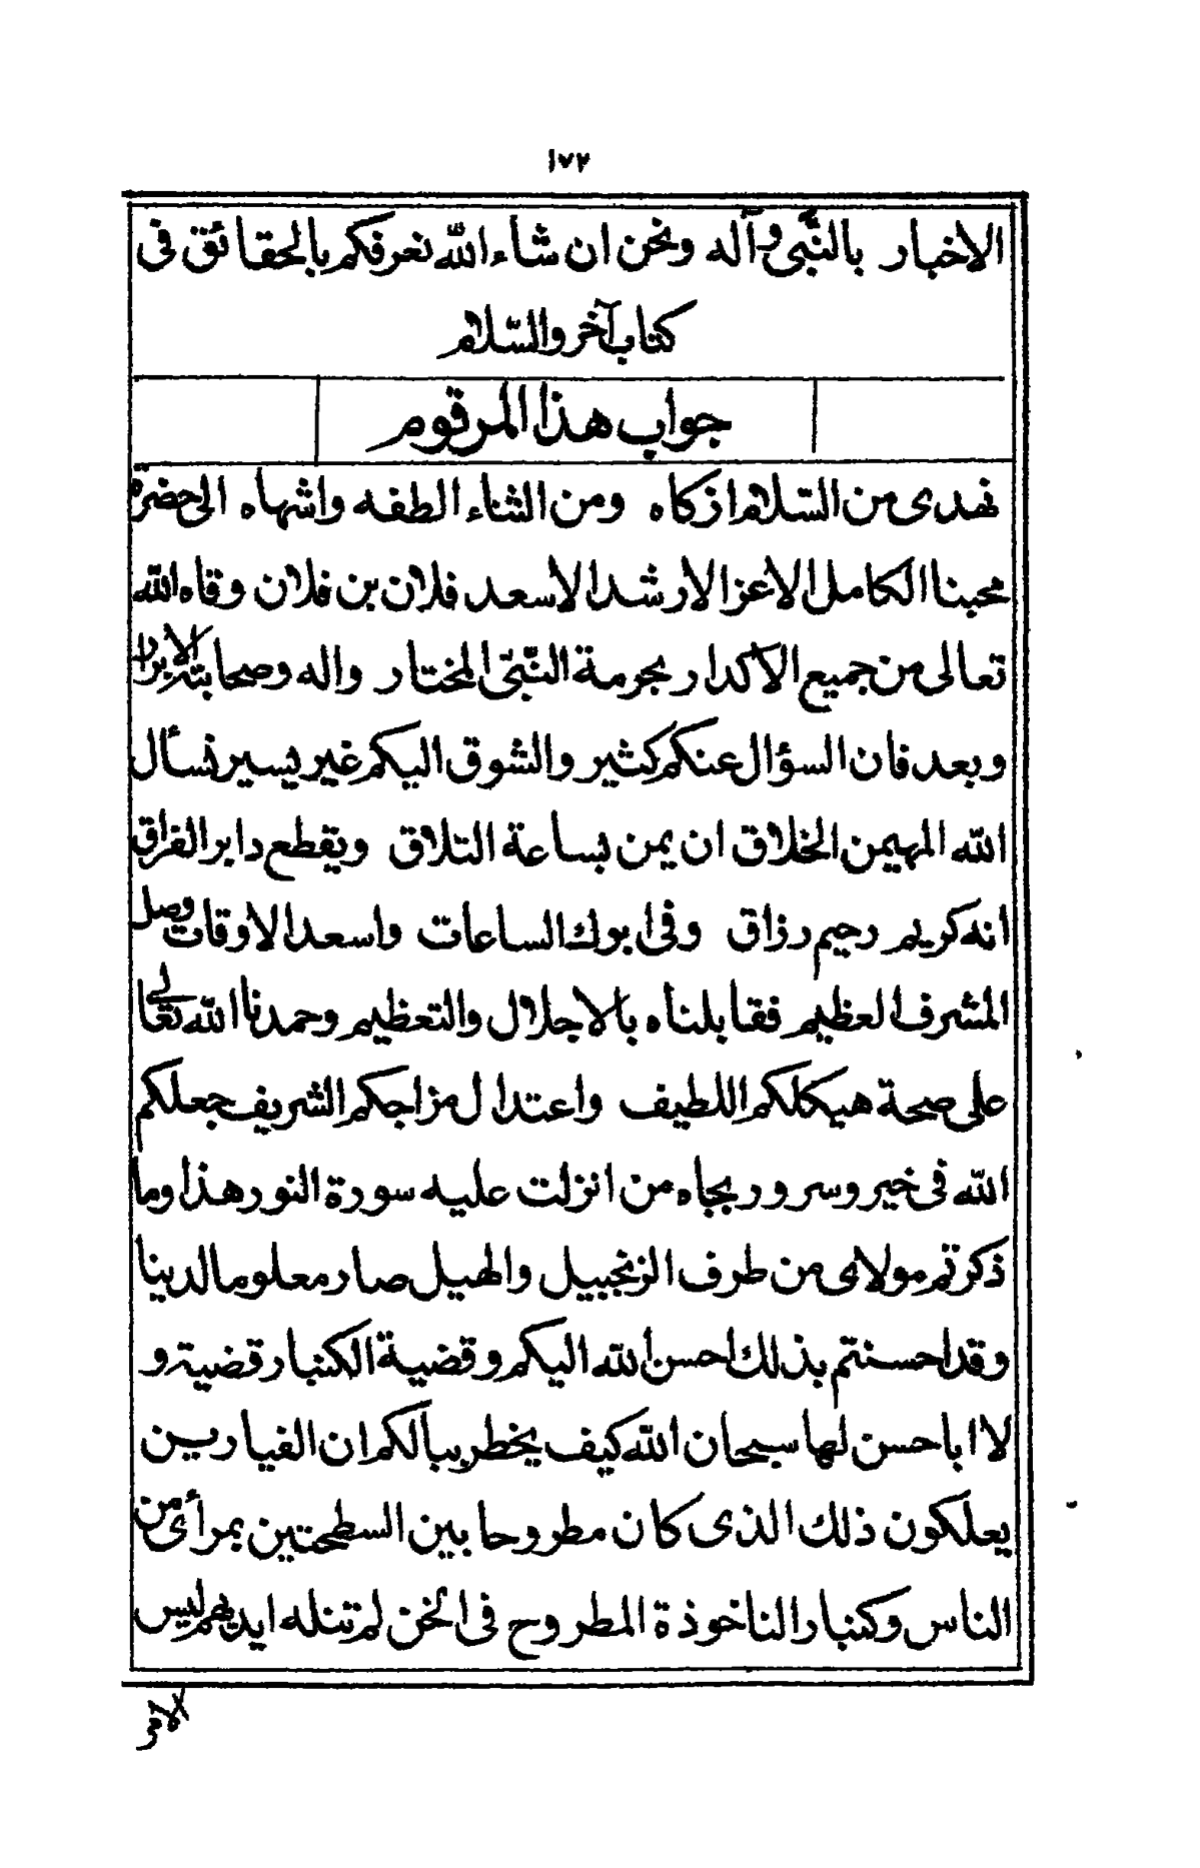 ١٧٢
الاخبار بالنّبى وآله ونحن ان شاء الله نعرفكم بالحقائق فى
كتاب آخر والسّلام
جواب هذا المرقوم
نهدى من السّلام ازكاه ومن الثناء الطفه واشهاه الى حضرة
محبنا الكامل الاعز الارشد الاسعد فلان بن فلان وقاه الله
تعالى من جميع الاكدار بحرمة النّبىّ المختار واله وصحابته الابرار
وبعد فان السؤال عنكم كثير والشوق اليكم غير يسير نسأل
الله المهيمن الخلاق ان يمن بساعة التلاق ويقطع دابر الفراق
انه كريم رحيم رزاق وفى ابرك الساعات واسعد الاوقات وصل
المشرف العظيم فقابلناه بالاجلال والتعظيم وحمدنا الله تعالى
على صحة هيكلكم اللطيف واعتدال مزاجكم الشريف جعلكم
الله فى خير وسرور بجاه من انزلت عليه سورة النور هذا وما
ذكرتم مولاى من طرف الزنجبيل والهيل صار معلوما لدينا
وقد احسنتم بذلك احسن الله اليكم وقضية الكنبار قضية و
لا ابا حسن لها سبحان الله كيف يخطر ببالكم ان الفيارين
يعلكون ذلك الذى كان مطروحا بين السطحتين بمرأى من
الناس وكنبار الناخوذة المطروح فى الخن لم تنله ايديهم ليس
الامر